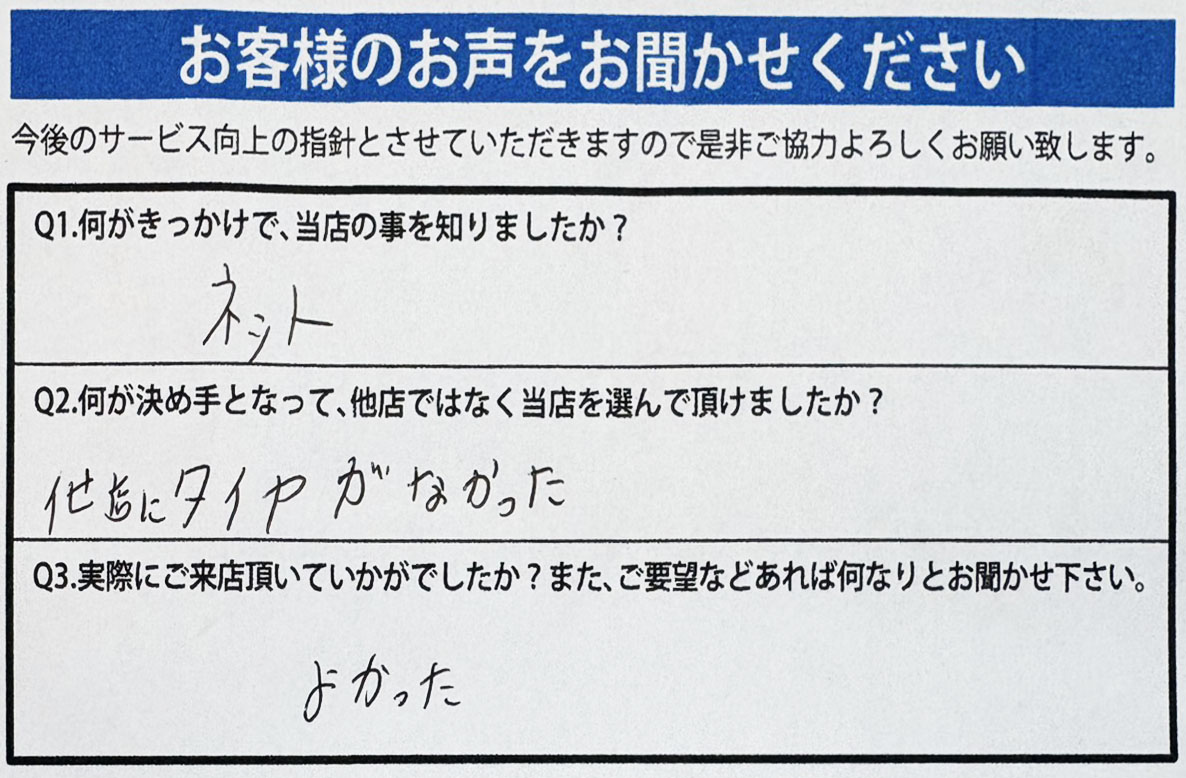 お客様のお声をお聞かせください
今後のサービス向上の指針とさせていただきますので是非ご協力よろしくお願い致します。
Q1.何がきっかけで、当店の事を知りましたか？
ネット
Q2.何が決め手となって、他店ではなく当店を選んで頂けましたか？
他店にタイヤがなかった
Q3.実際にご来店頂いていかがでしたか？また、ご要望などあれば何なりとお聞かせ下さい。
よかった